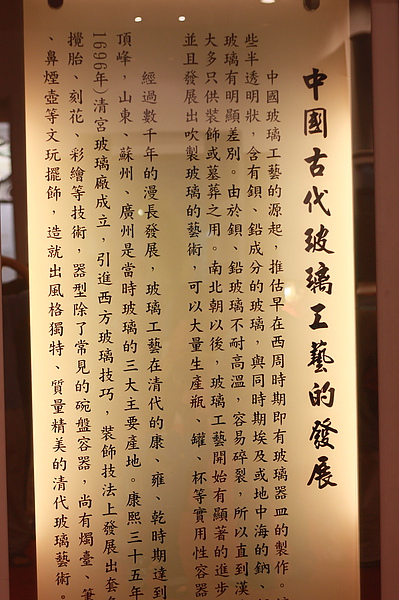 中國古代玻璃工藝的發展
中國玻璃工藝的源起，推估早在西周時期即有玻璃器皿的製作。
些半透明狀，含有鋇、鉛成分的玻璃，與同時期埃及或地中海的鈉、
玻璃有明顯差別。由於鋇、鉛玻璃不耐高溫，容易碎裂，所以直到漢
大多只供裝飾或墓葬之用。南北朝以後，玻璃工藝開始有顯著的進步
並且發展出吹製玻璃的藝術，可以大量生產瓶、罐、杯等實用性容器
經過數千年的漫長發展，玻璃工藝在清代的康、雍、乾時期達到
頂峰，山東、蘇州、廣州是當時玻璃的三大主要產地。康熙三十五年
1696年)清宮玻璃廠成立，引進西方玻璃技巧，裝飾技法上發展出套
攪胎、刻花、彩繪等技術，器型除了常見的碗盤容器，尚有燭臺、筆
、鼻煙壺等文玩擺飾，造就出風格獨特、質量精美的清代玻璃藝術。